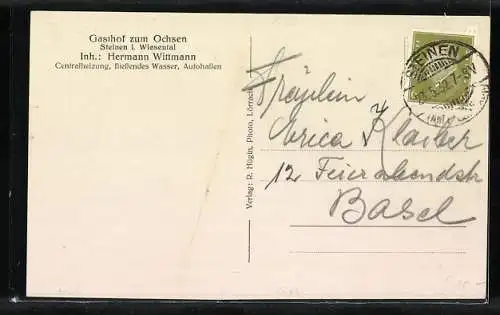 Gasthof zum Ochsen
Steinen i. Wiesental
Inh.: Hermann Wittmann
Centralheizung, fließendes Wasser, Autohallen
STEINEN
Verlag: R. Högin, Photo, Lörrach
Fräulein
Erica Klaiber
12 Feierabendstr
Basel